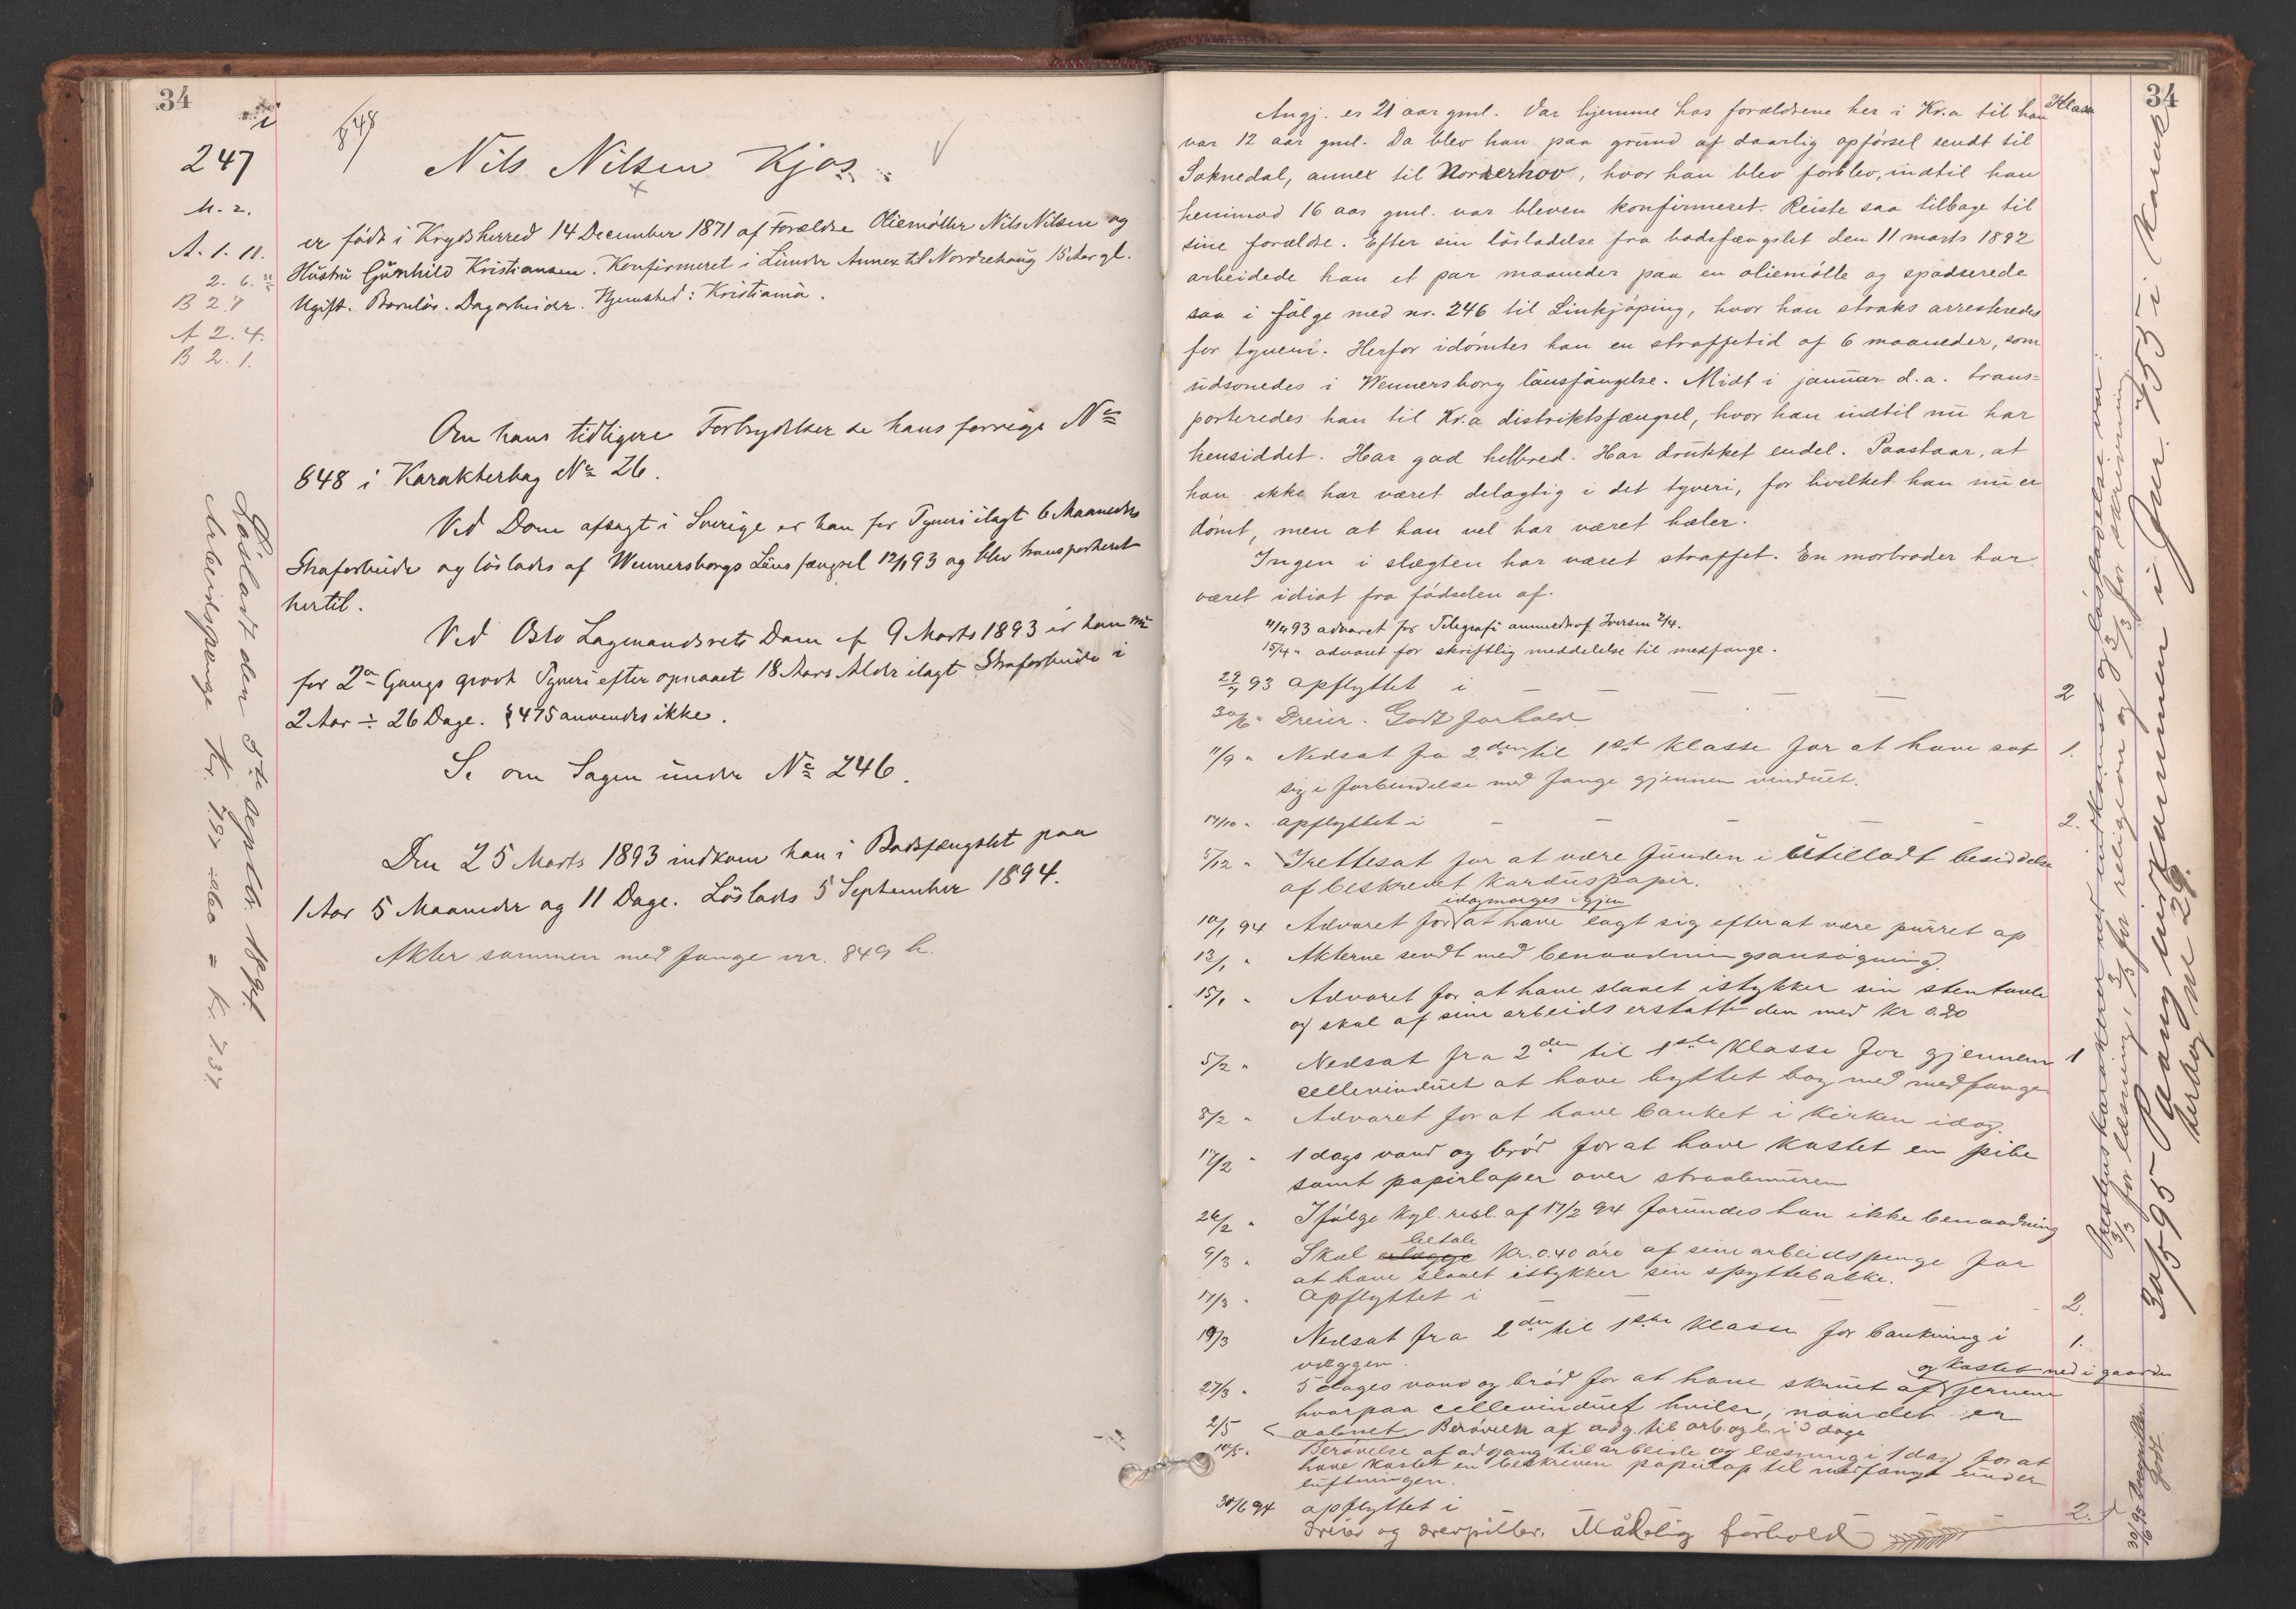 34
247
848
Nils Nilsen Kjos.
M. 2.
A. 1. 11.
2. 6.
B 2. 7
A 2. 4.
B 2. 1.
er født i Krydsherred 14 December 1871 af Forældre Oliemøller Nils Nilsen og
Hustru Gunhild Kristiansen. Konfirmeret i Lunder Annex til Norderhaug 15 Aar gl.
Ugift. Barnløs. Dagarbeider. Hjemsted: Kristiania.
Om hans tidligere Forbrydelser se hans forrige No
848 i Karakterbog No 26.
Ved Dom afsagt i Sverige er han for Tyveri ilagt 6 Maaneders
Strafarbeide og løslades af Wennersborgs Läns fængsel 12/1 93 og blev transporteret
hertil.
Ved Oslo Lagmandsrets Dom af 9 Marts 1893 er han nu
for 2en Gangs grovt Tyveri efter opnaaet 18 Aars Alder ilagt Strafarbeide i
2 Aar ÷ 26 Dage. § 475 anvendes ikke.
Se om Sagen under No 246.
Den 25 Marts 1893 indkom han i Bodsfængslet paa
1 Aar 5 Maaneder og 11 Dage. Løslades 5 September 1894.
Akter sammen med fange nr. 849 h.
Løsladt den 5te septbr. 1894.
Arbeidspenge Kr. 7.97 ÷ 0.60 = Kr. 7.37
34
Klasse
Angj. er 21 aar gml. Var hjemme hos forældrene her i Kr.a til han
var 12 aar gml. Da blev han paa grund af daarlig opførsel sendt til
Soknedal, annex til Norderhov, hvor han blev forblev, indtil han
henimod 16 aar gml. var bleven konfirmeret. Reiste saa tilbage til
sine forældre. Efter sin løsladelse fra bodsfængslet den 11 marts 1892
arbeidede han et par maaneder paa en oliemølle og spadserede
saa i følge med nr. 246 til Linkjøping, hvor han straks arresteredes
for tyveri. Herfor idømtes han en straffetid af 6 maaneder, som
udsonedes i Wennersborg länsfängelse. Midt i januar d.a. trans-
porteredes han til Kr.a distriktsfængsel, hvor han indtil nu har
hensiddet. Har god helbred. Har drukket endel. Paastaar, at
han ikke har været delagtig i det tyveri, for hvilket han nu er
dømt, men at han vel har været hæler.
Ingen i slægten har været straffet. En morbroder har
været idiot fra fødselen af.
11/4 93 advaret for Telegrafi anmeldt af Iversen 2/4.
15/4 " advaret for skriftlig meddelelse til medfange.
93 opflyttet i — — — — — 2
30/6 " Dreier. Godt forhold
11/9 " Nedsat fra 2den til 1ste Klasse for at have sat 1.
sig i forbindelse med fange gjennem vinduet.
17/10 " opflyttet i — — — — 2.
5/12 " Irettesat for at være funden i utilladt besiddelse
af beskrevet karduspapir.
idagmorges igjen
10/1 94 Advaret for at have lagt sig efter at være purret op
13/1 " Akterne sendt med benaadningsansøgning.
15/1 " Advaret for at have slaaet istykker sin stentavle
og skal af sine arbeids erstatte den med Kr 0.20
5/2 " Nedsat fra 2den til 1ste Klasse for gjennem 1
cellevinduet at have byttet bog med medfange
8/2 " Advaret for at have banket i Kirken idag.
17/2 " 1 dags vand og brød for at have kastet en pibe
samt papirlaper over straalemuren
26/2 " Ifølge Kgl. resl. af 17/2 94 forundes han ikke benaadning
betale
9/3 " Skal erlægge Kr. 0.40 øre af sine arbeidspenge for
at have slaaet istykker sin spyttebakke.
17/3 " opflyttet i — — — — 2.
19/3 Nedsat fra 2den til 1ste Klasse for bankning i 1.
væggen.
og kastet ned i gaarden
27/3 " 5 dages vand og brød for at have skruet af jernene
hvorpaa cellevinduet hviler, naar det er
aabnet
2/5 Berøvelse af adg. til arb. og l. i 3 dage
10/5 " Berøvelse af adgang til arbeide og læsning i 1 dag for at
have kastet en beskreven papirlap til medfange under
luftningen.
30/6 94 opflyttet i — 2.
dreier og drevpiller. Mådelig forhold
Prestens karakterer ved indkomst og løsladelse var:
3/3 for læsning, 3/3 for religion og 3/3 for skrivning
30/5 95 Pany indkommen i Gur. 155 i Karakt
terbog nr 29.